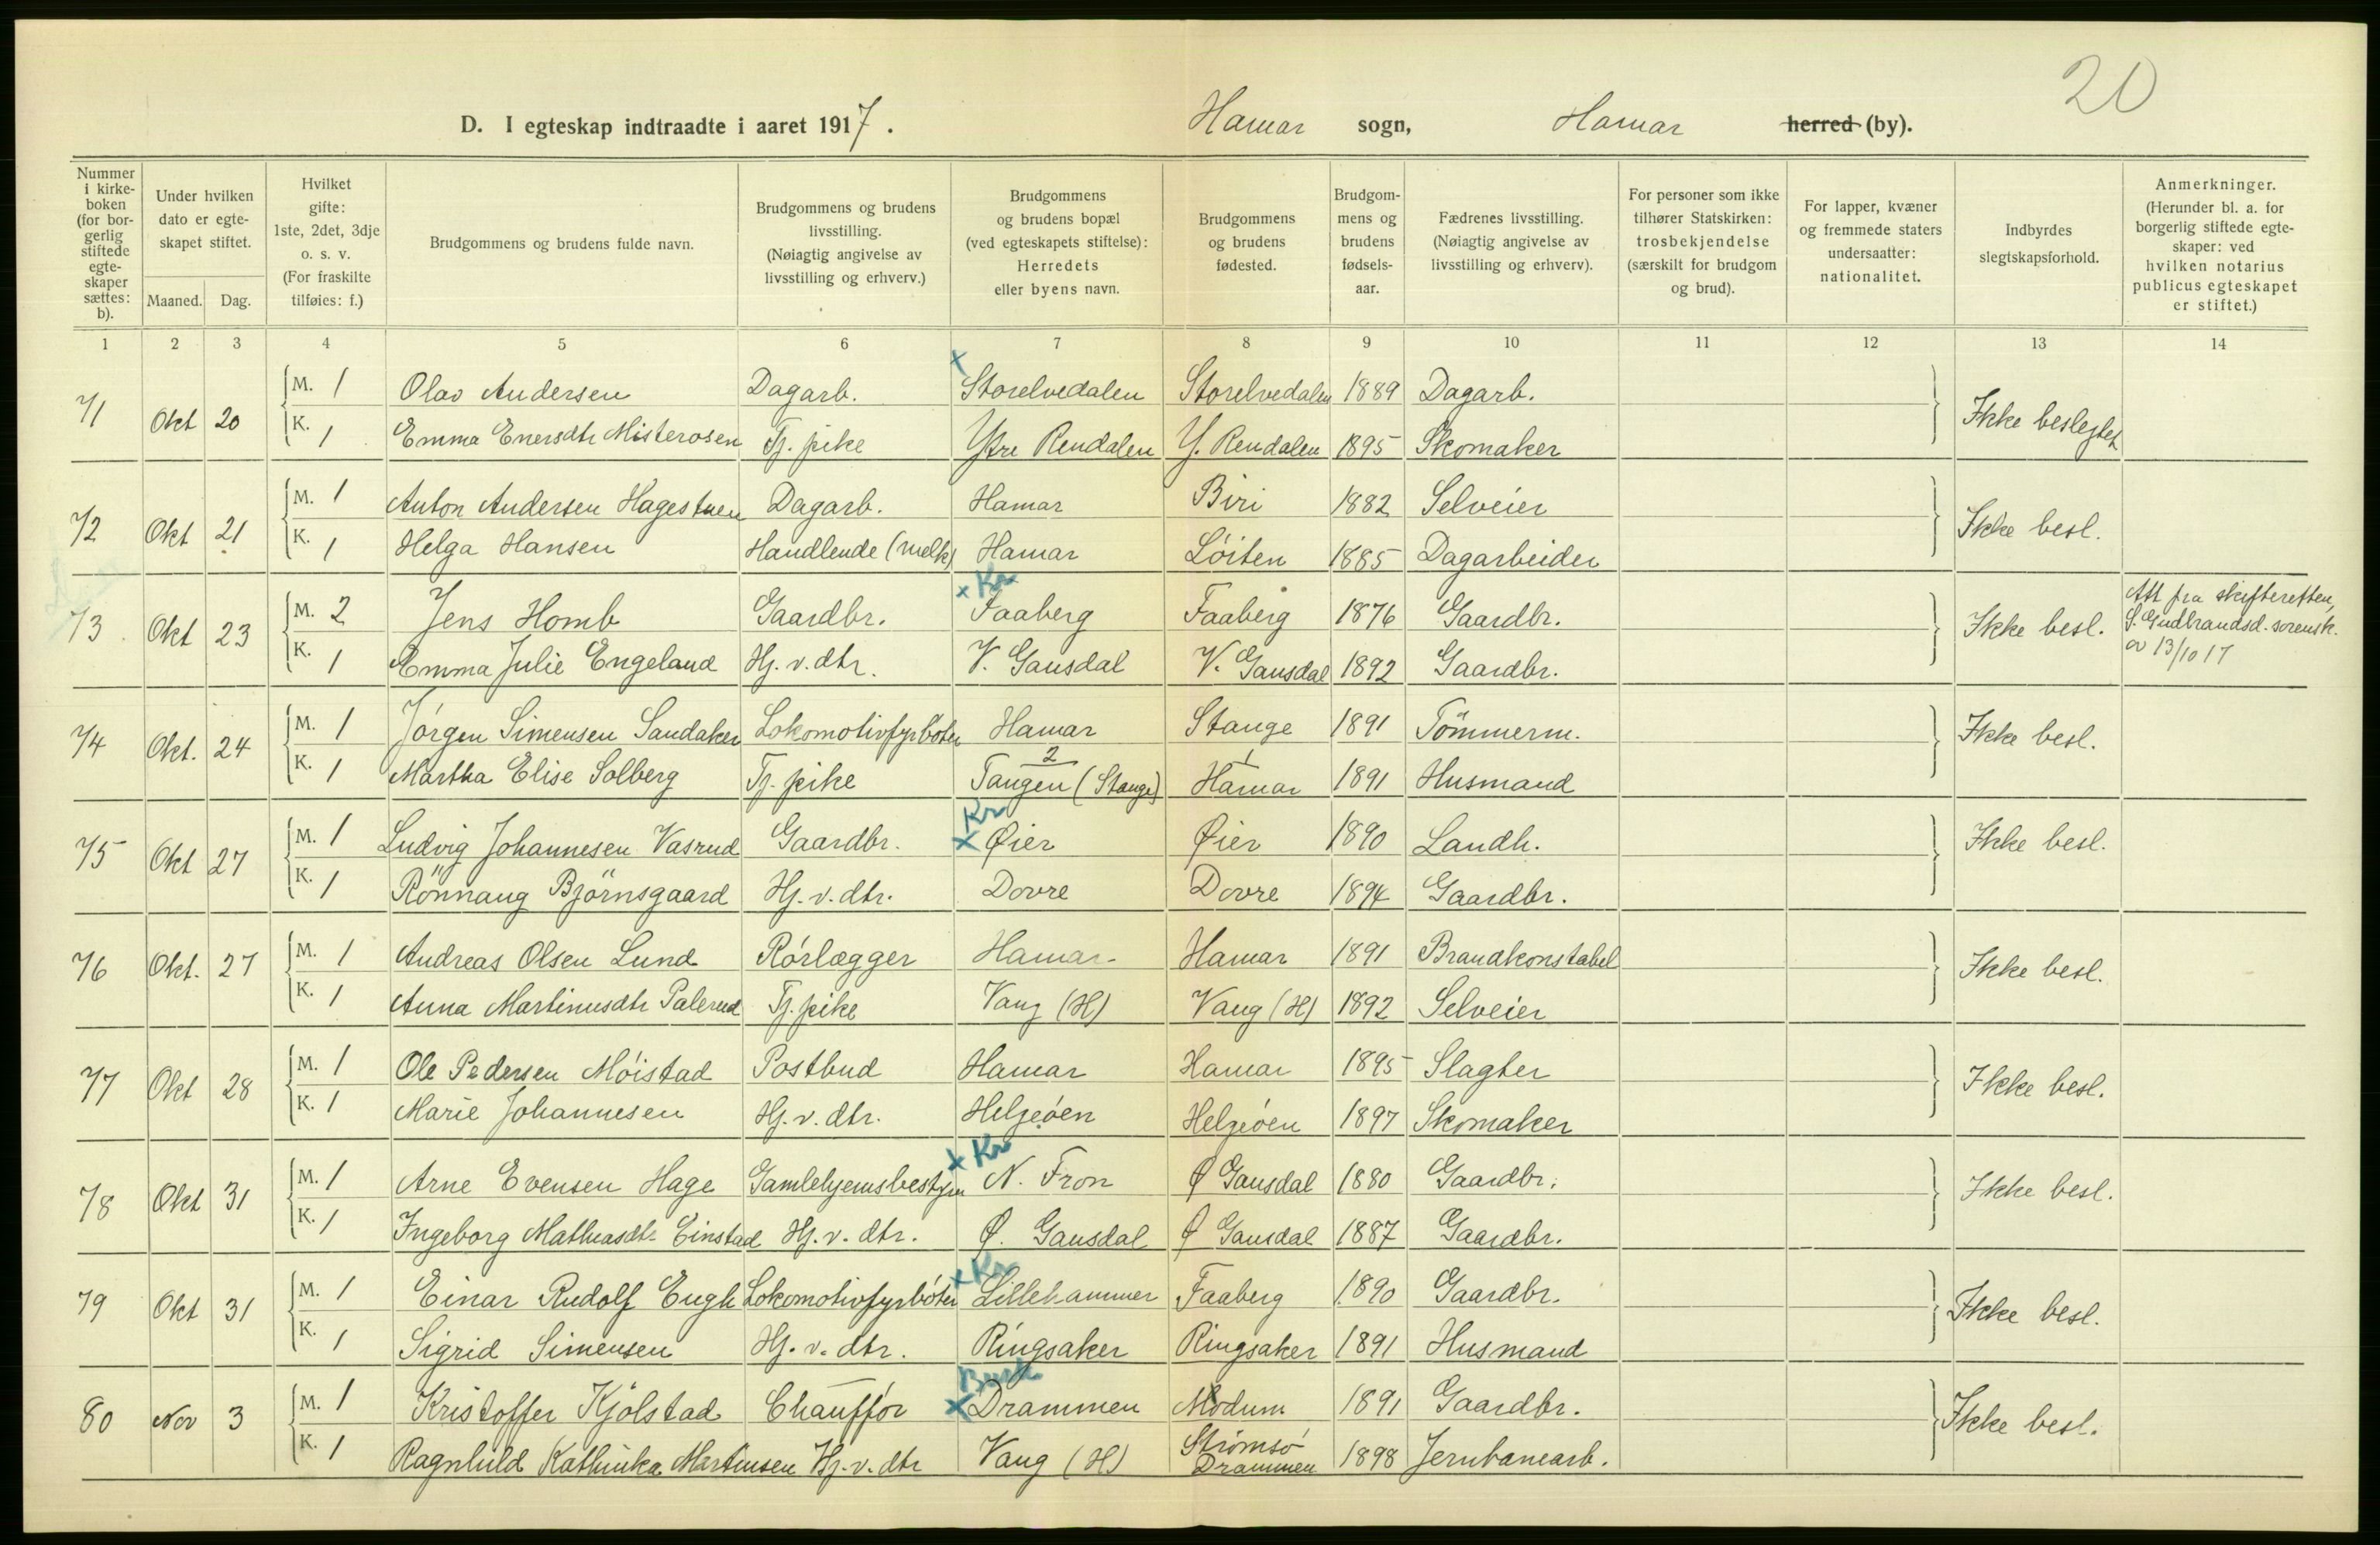 20
D. I egteskap indtraadte i aaret 1917. Hamar sogn, Hamar herred (by).
Nummer i kirkeboken (for borgerlig stiftede egteskaper sættes: b).
Under hvilken dato er egteskapet stiftet.
Maaned. Dag.
Hvilket gifte: 1ste, 2det, 3dje o. s. v. (For fraskilte tilføies: f.)
Brudgommens og brudens fulde navn.
Brudgommens og brudens livsstilling. (Nøiagtig angivelse av livsstilling og erhverv.)
Brudgommens og brudens bopæl (ved egteskapets stiftelse): Herredets eller byens navn.
Brudgommens og brudens fødested.
Brudgommens og brudens fødselsaar.
Fædrenes livsstilling. (Nøiagtig angivelse av livsstilling og erhverv).
For personer som ikke tilhører Statskirken: trosbekjendelse (særskilt for brudgom og brud).
For lapper, kvæner og fremmede staters undersaatter: nationalitet.
Indbyrdes slegtskapsforhold.
Anmerkninger. (Herunder bl. a. for borgerlig stiftede egteskaper: ved hvilken notarius publicus egteskapet er stiftet.)
1 2 3 4 5 6 7 8 9 10 11 12 13 14
71 Okt 20 M. 1 Olav Andersen Dagarb. x Storelvedalen Storelvedalen 1889 Dagarb. Ikke beslegtet
K. 1 Emma Enersdtr Misterosen Tj. pike Ytre Rendalen Y. Rendalen 1895 Skomaker
72 Okt 21 M. 1 Anton Andersen Hagestuen Dagarb. Hamar Biri 1882 Selveier Ikke besl.
K. 1 Helga Hansen Handlende (melk) Hamar Löiten 1885 Dagarbeider
73 Okt 23 M. 2 Jens Homb Gaardbr. x Kr Faaberg Faaberg 1876 Gaardbr. Ikke besl. Att fra skifteretten, S. Gudbrandsd. sorensk. av 13/10 17
K. 1 Emma Julie Engeland Hj. v. dtr. V. Gausdal V. Gausdal 1892 Gaardbr.
74 Okt. 24 M. 1 Jörgen Simensen Sandaker Lokomotivfyrböter Hamar Stange 1891 Tömmerm. Ikke besl.
K. 1 Martha Elise Solberg Tj. pike 2 Tangen (Stange) 1 Hamar 1891 Husmand
75 Okt 27 M. 1 Ludvig Johannesen Vasrud Gaardbr. x Kr Øier Øier 1890 Landh. Ikke besl.
K. 1 Rönnaug Björnsgaard Hj. v. dtr. Dovre Dovre 1894 Gaardbr.
76 Okt. 27 M. 1 Andreas Olsen Lund Rórlægger Hamar Hamar 1891 Brandkonstabel Ikke besl.
K. 1 Anna Martinusdtr Palerud Tj. pike Vang (H) Vang (H) 1892 Selveier
77 Okt 28 M. 1 Ole Pedersen Móistad Postbud Hamar Hamar 1895 Slagter Ikke besl.
K. 1 Marie Johannesen Hj. v. dtr. Helgeóen Helgeóen 1897 Skomaker
78 Okt 31 M. 1 Arne Evensen Hage Gamlehjemsbestyrer x Kr N. Fron Ø Gausdal 1880 Gaardbr. Ikke besl.
K. 1 Ingeborg Mathiasdtr Einstad Hj. v. dtr. Ø. Gausdal Ø Gausdal 1887 Gaardbr.
79 Okt 31 M. 1 Einar Rudolf Engh Lokomotivfyrbóter x Kr Lillehammer Faaberg 1890 Gaardbr. Ikke besl.
K. 1 Sigrid Simensen Hj. v. dtr. Ringsaker Ringsaker 1891 Husmand
80 Nov 3 M. 1 Kristoffer Kjölstad Chauffór x Busk Drammen Modum 1891 Gaardbr. Ikke besl.
K. 1 Ragnhild Kathinka Martinsen Hj. v. dtr Vang (H) Strömsó Drammen 1898 Jernbanearb.